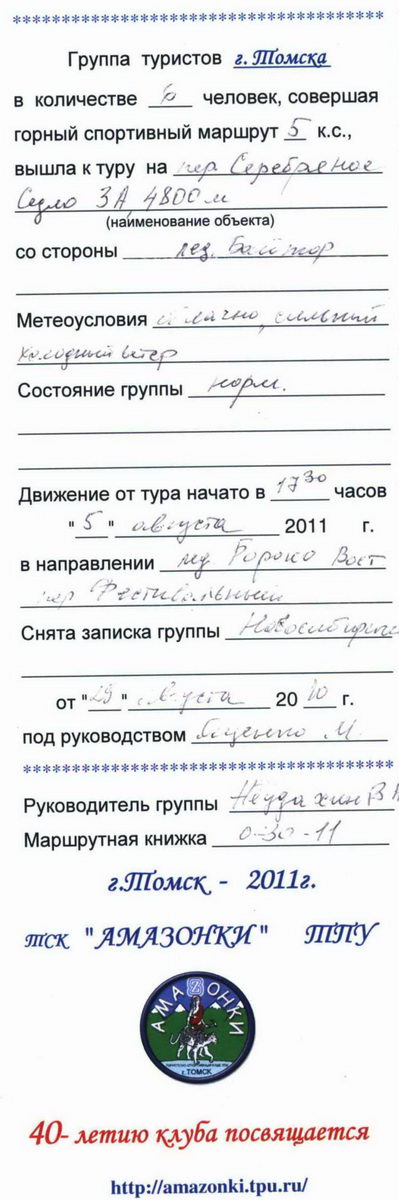 ************************************
Группа туристов г. Томска
в количестве 6 человек, совершая
горный спортивный маршрут 5 к.с.,
вышла к туру на пер Серебряное
Седло 3А, 4800 м
(наименование объекта)
со стороны лед. Байтор
Метеоусловия облачно, сильный
холодный ветер
Состояние группы норм.
Движение от тура начато в 17 30 часов
" 5 " августа 2011 г.
в направлении лед Бороко Вост
пер Фестивальный
Снята записка группы Новосибирска
от " 29 " августа 20 10 г.
под руководством М.
************************************
Руководитель группы Неудахин В
Маршрутная книжка 0-30-11
г.Томск - 2011г.
ТСК "АМАЗОНКИ" ТПУ
АМАЗОНКИ
г.ТОМСК
40- летию клуба посвящается
http://amazonki.tpu.ru/